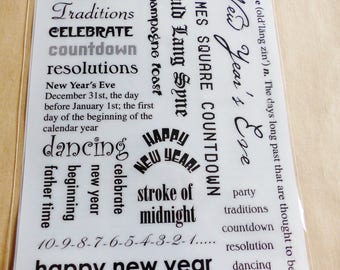 Traditions
CELEBRATE
countdown
resolutions
New Year's Eve
December 31st, the day
before January 1st; the first
day of the beginning of the
calendar year
dancing
father time
beginning
new year
celebrate
10-9-8-7-6-5-4-3-2-1.....
happy new year
champagne toast
auld Lang Syne
HAPPY
NEW YEAR!
stroke of
midnight
TIMES SQUARE COUNTDOWN
New Year's Eve
(old'lang zin') n. The days long past that are thought to be
party
traditions
countdown
resolution
dancing